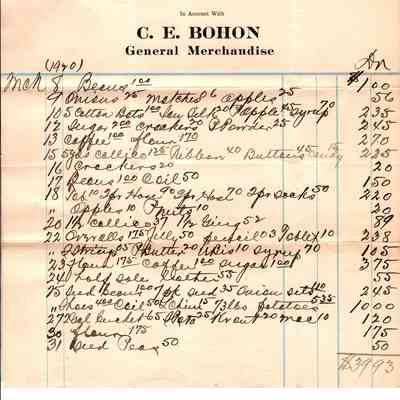 In Account With
C. E. BOHON
General Merchandise
(1920) Dr
Mch 8 Beans 1.00 $1 00
9 Onions 25 Matches 6 Apples 25 56
10 5 Cotton Bats 1.00 20 Apple 45 Syrup 70 2 35
12 Sugar 2.00 Crackers 20 Powder 25 2 45
13 Coffee 1.00 Flour 1.70 2 70
15 5 yds Callico 1.25 Ribbon 40 Buttons 45 Candy 2 35
16 Crackers 20 20
17 Beans 1.00 Oil 50 1 50
18 2 pr Hose 90 2 pr Hose 70 2 pr Socks 50 2 20
" Apples 10 10 20
20 Callico 37 Ging 52 89
22 Overalls 1.75 50 pencil 03 Tablet 10 2 38
" Butter Syrup 70 1 05
23 Flour 1.75 Coffee 1.00 Sugar 1.00 3 75
24 half sole leather 55 55
25 Seed Beans 1.00 Seed 35 Onion Sets 1.10 2 45
" Shoes Oil 50 15 73 lbs potatoes 5.35 10 00
27 Bucket 65 25 Kraut 20 Mac 10 1 20
30 Flour 1.75 1 75
31 Seed Peas 50 50
$39 93